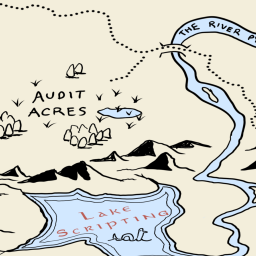 THE RIVER P
AUDIT
ACRES
LAKE
SCRIPTING
salt